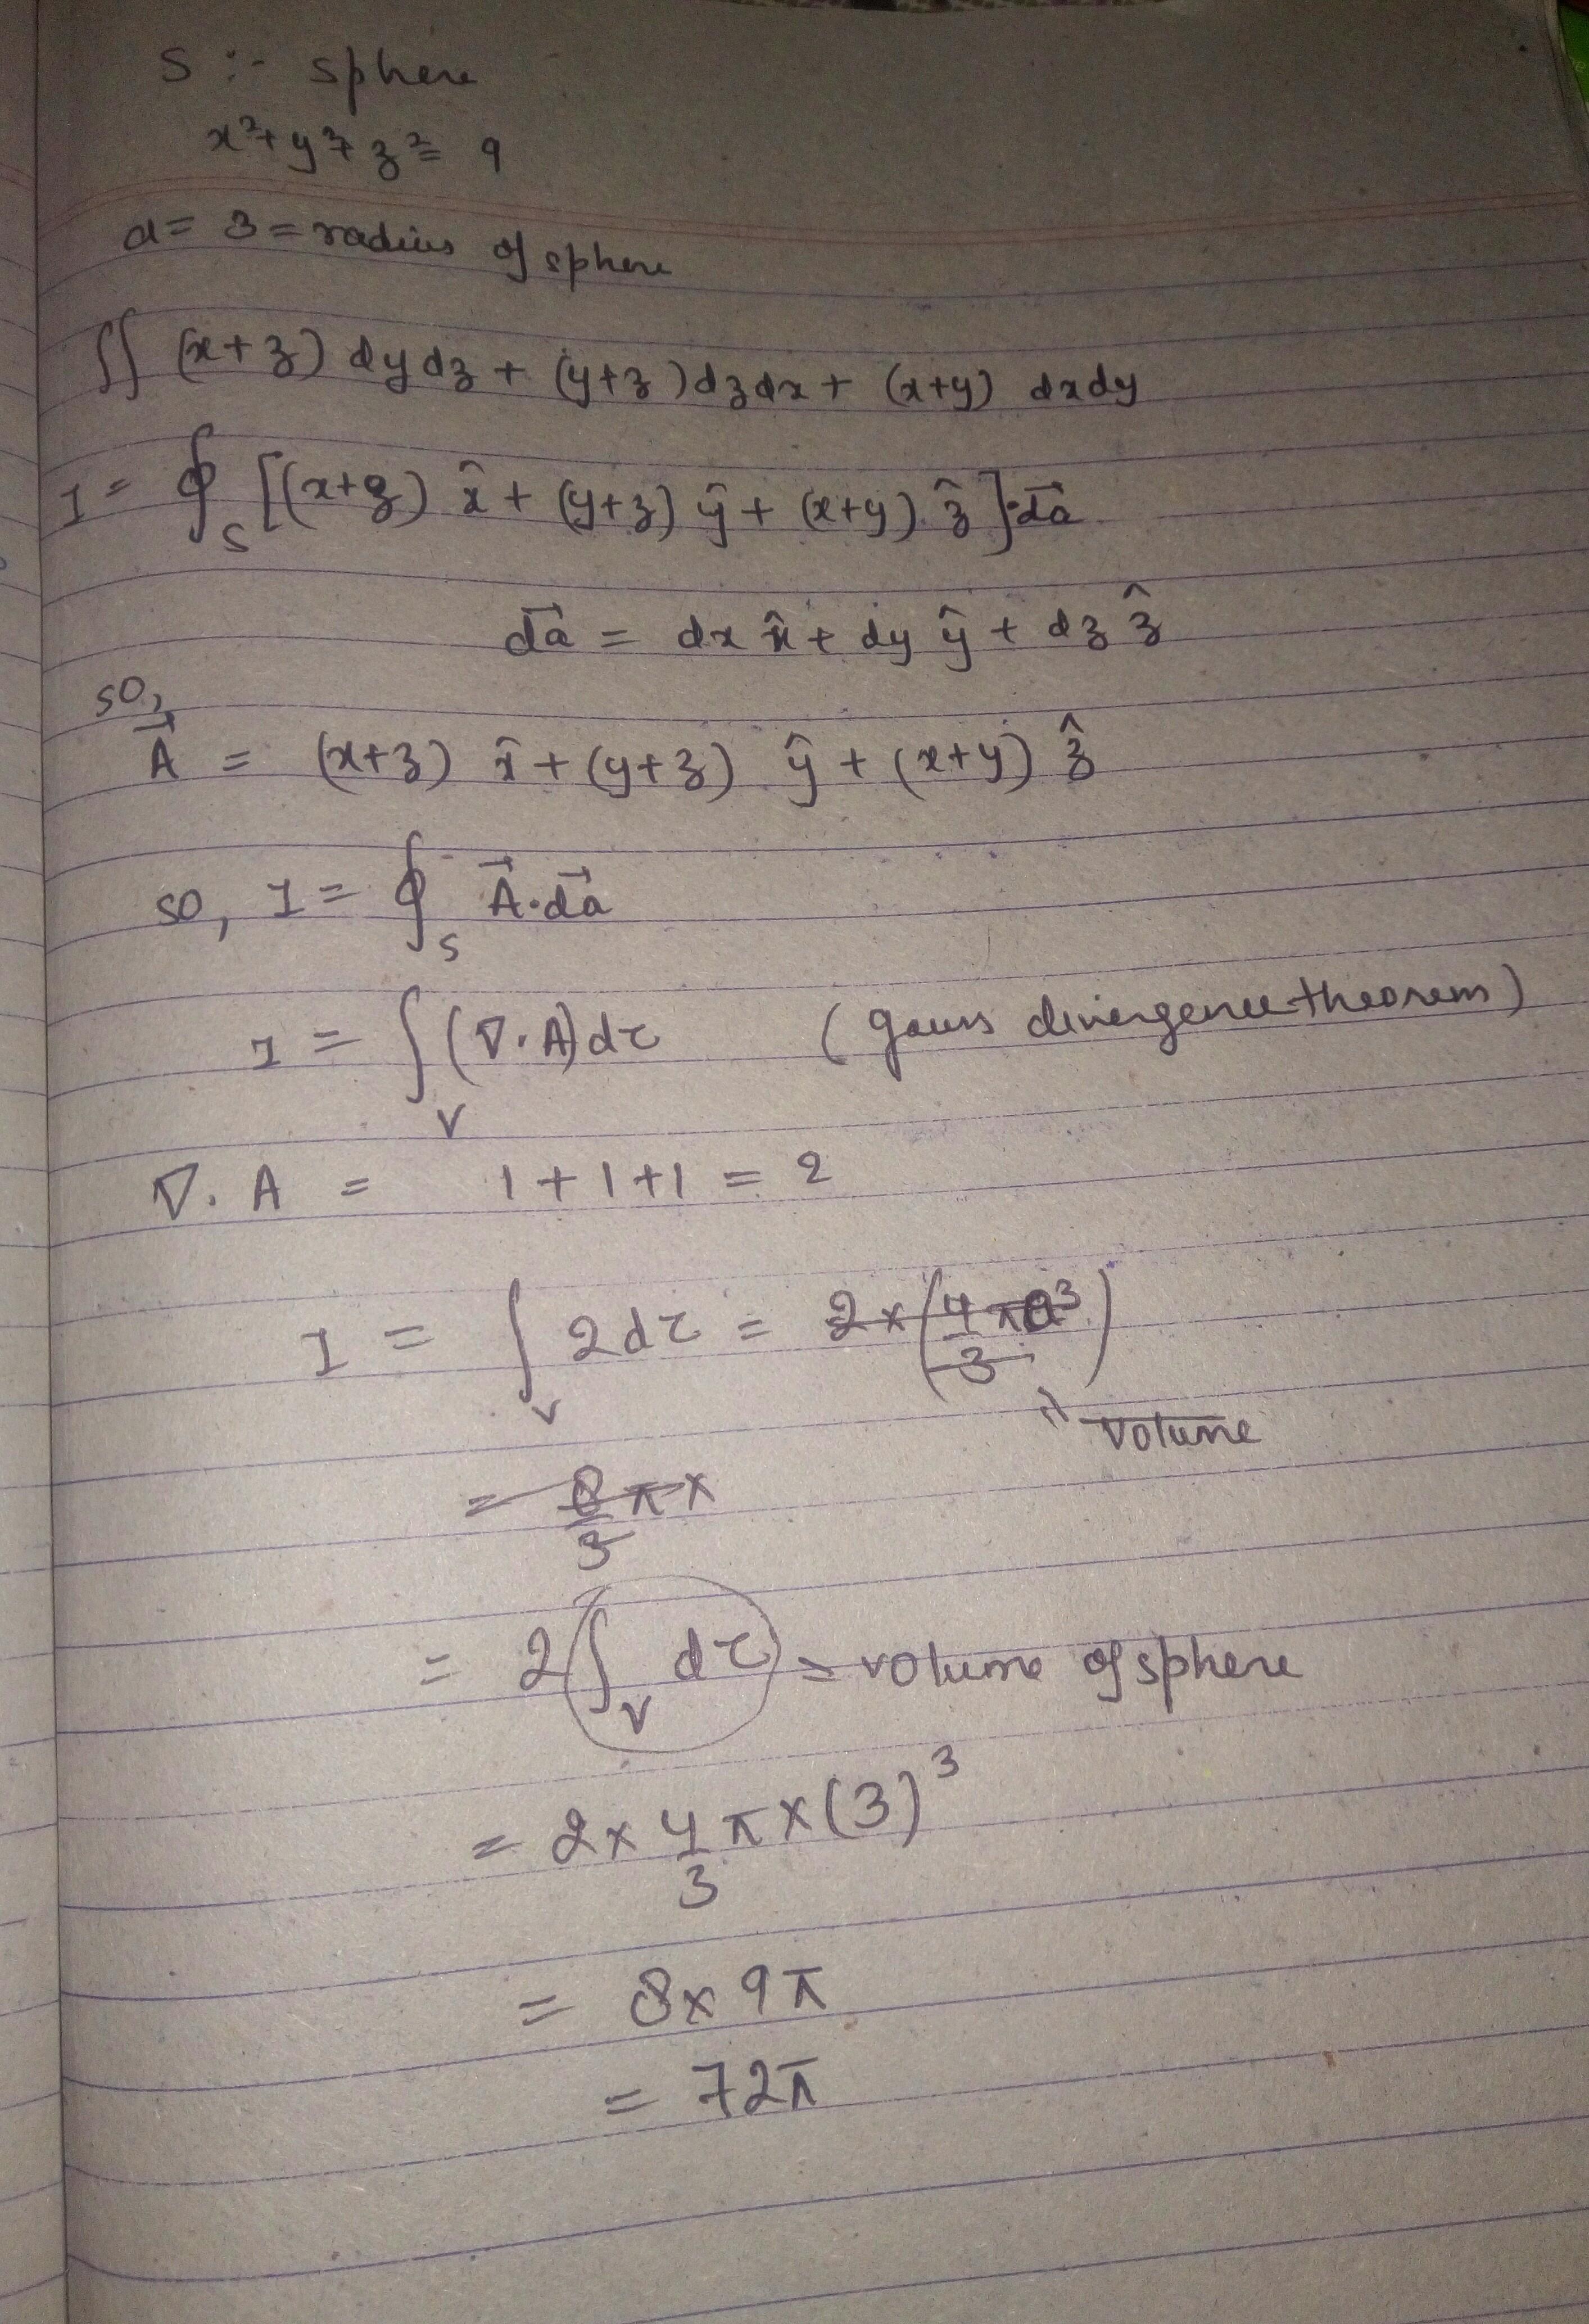 S :- sphere
x²+y²+z²= 9
a= 3 = radius of sphere
∬ (x+z) dydz + (y+z)dzdx + (x+y) dxdy
I = ∮_S [(x+z) x̂ + (y+z) ŷ + (x+y) ẑ]·da⃗
da⃗ = dx x̂ + dy ŷ + dz ẑ
so,
A⃗ = (x+z) x̂ + (y+z) ŷ + (x+y) ẑ
so, I = ∮_S A⃗·da⃗
I = ∫_V (∇·A)dτ (gauss divergence theorem)
∇. A = 1+1+1 = 2
I = ∫_V 2dτ = 2×(4πa³/3)
⇒ volume
= 8/3 π×
= 2(∫_V dτ) = volume of sphere
= 2× 4/3 π×(3)³
= 8×9π
= 72π